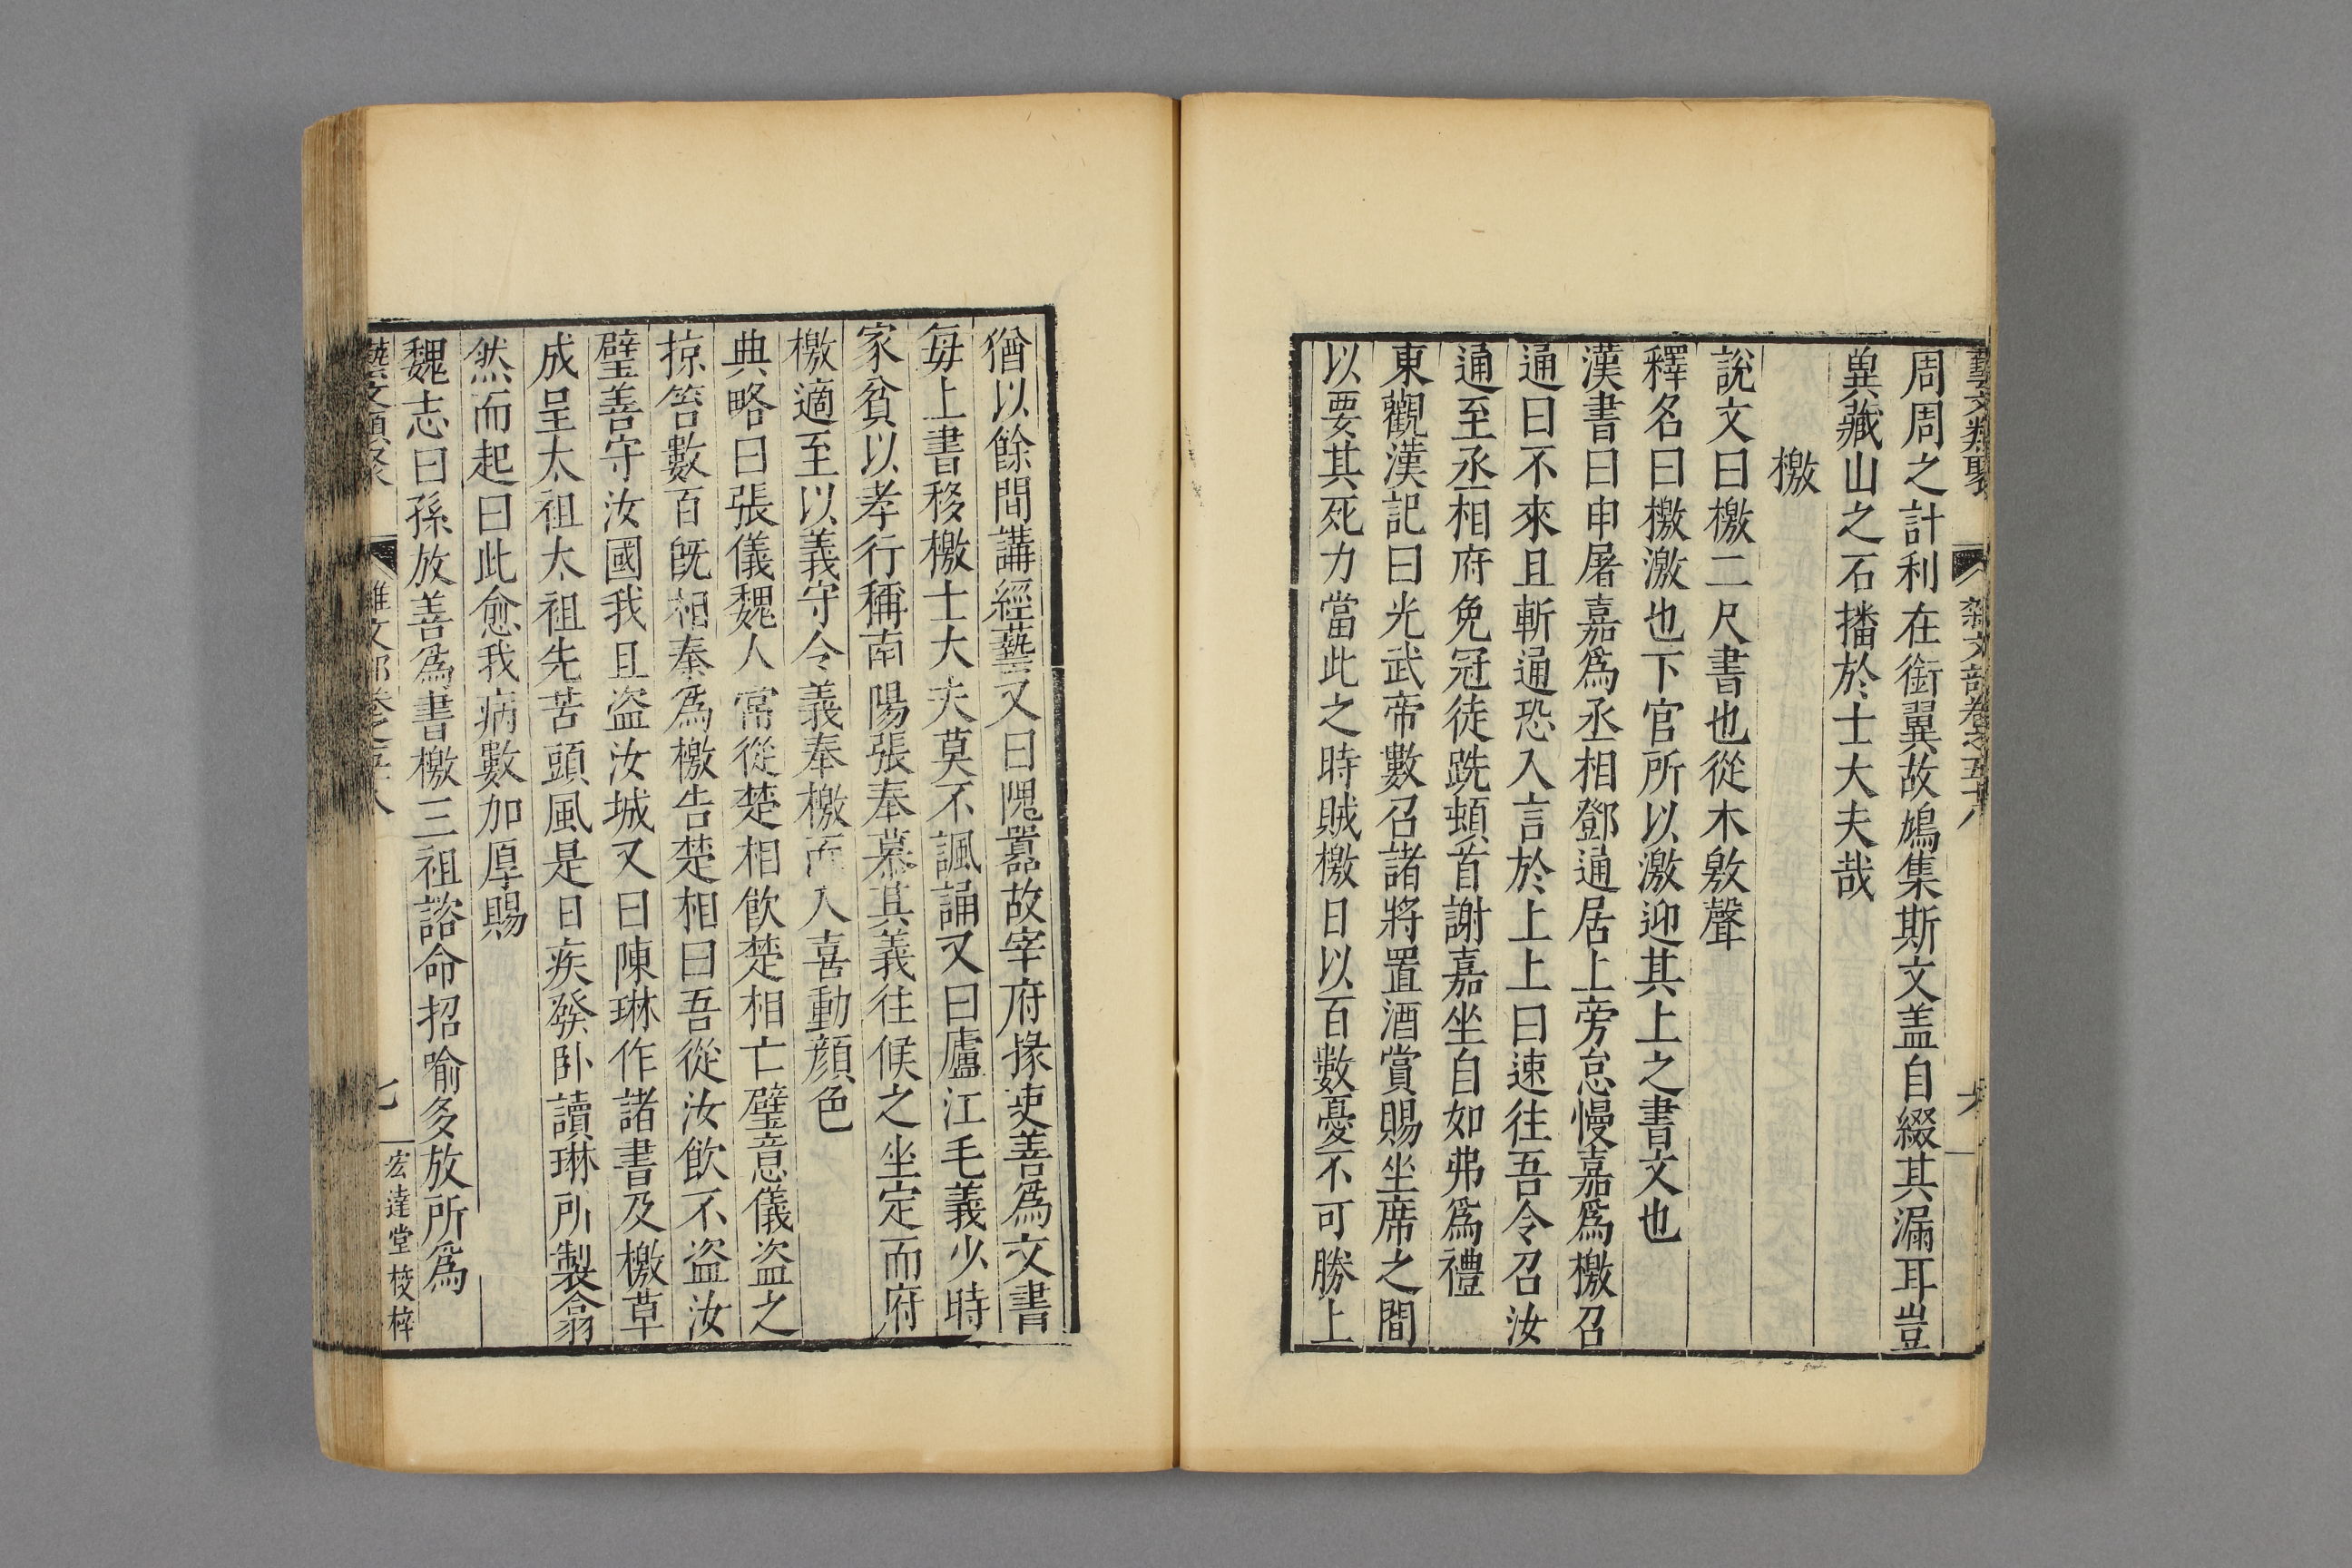 藝文類聚 雜文部卷之五十八 六
周周之計利在銜翼故鳩集斯文盖自綴其漏耳豈
兾藏山之石播於士大夫哉
檄
說文曰檄二尺書也從木敫聲
釋名曰檄激也下官所以激迎其上之書文也
漢書曰申屠嘉爲丞相鄧通居上旁怠慢嘉爲檄召
通曰不來且斬通恐入言於上上曰速往吾令召汝
通至丞相府免冠徒跣頓首謝嘉坐自如弗爲禮
東觀漢記曰光武帝數召諸將置酒賞賜坐席之間
以要其死力當此之時賊檄日以百數憂不可勝上
猶以餘間講經藝又曰隗囂故宰府掾吏善爲文書
每上書移檄士大夫莫不諷誦又曰廬江毛義少時
家貧以孝行稱南陽張奉慕其義往候之坐定而府
檄適至以義守令義奉檄而入喜動顏色
典略曰張儀魏人常從楚相飲楚相亡璧意儀盜之
掠笞數百旣相秦爲檄告楚相曰吾從汝飲不盜汝
璧善守汝國我且盜汝城又曰陳琳作諸書及檄草
成呈太祖太祖先苦頭風是日疾發卧讀琳所製翕
然而起曰此愈我病數加厚賜
魏志曰孫放善爲書檄三祖詔命招喻多放所爲
藝文類聚 雜文部卷之五十八 七 宏達堂校梓